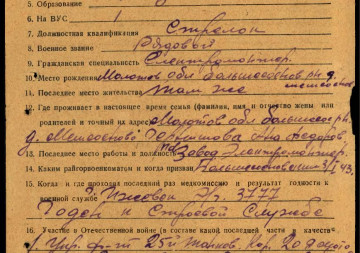 5. Образование
6. На ВУС 1
7. Должностная квалификация Стрелок
8. Военное звание Рядовой
9. Гражданская специальность Электромонтер.
10. Место рождения Молотов обл
11. Последнее место жительства Там же
12. Где проживает в настоящее время семья (фамилия, имя и отчество жены или
родителей и точный их адрес) Молотов обл
д.
13. Последнее место работы и должность Завод Электромонтер.
14. Каким райгорвоенкоматом и когда призван 43.
15. Когда и где проходил последний раз медкомиссию и результат годности к
военной службе г. Ижевск Эг. 3177
Годен к Строевой Службе
16. Участие в Отечественной войне (в составе какой последней части и в качестве
1. Укр. ф-т 25й Танков. Кор. 20